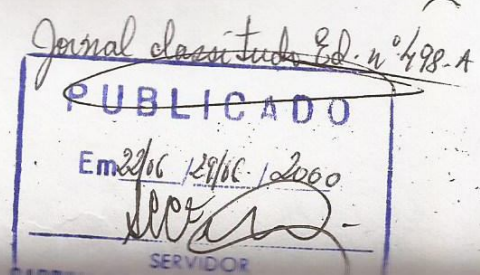 Jornal classitudo Ed. nº 498-A
PUBLICADO
Em 22/06 / 29/06 / 2000
SERVIDOR